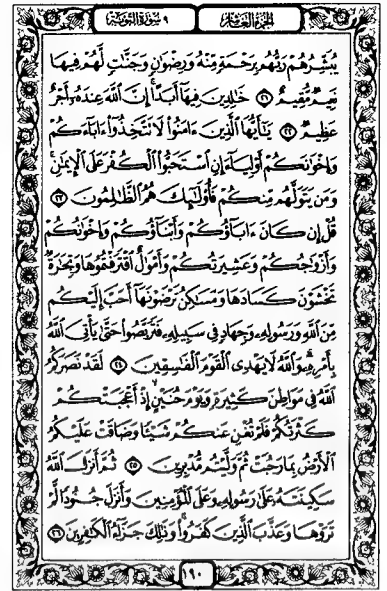 الجزء العاشر
٩ سورة التوبة
يُبَشِّرُهُمْ رَبُّهُم بِرَحْمَةٍ مِّنْهُ وَرِضْوَٰنٍ وَجَنَّٰتٍ لَّهُمْ فِيهَا
نَعِيمٌ مُّقِيمٌ ٢١ خَٰلِدِينَ فِيهَآ أَبَدًا إِنَّ ٱللَّهَ عِندَهُۥٓ أَجْرٌ
عَظِيمٌ ٢٢ يَٰٓأَيُّهَا ٱلَّذِينَ ءَامَنُوا۟ لَا تَتَّخِذُوٓا۟ ءَابَآءَكُمْ
وَإِخْوَٰنَكُمْ أَوْلِيَآءَ إِنِ ٱسْتَحَبُّوا۟ ٱلْكُفْرَ عَلَى ٱلْإِيمَٰنِ
وَمَن يَتَوَلَّهُم مِّنكُمْ فَأُو۟لَٰٓئِكَ هُمُ ٱلظَّٰلِمُونَ ٢٣
قُلْ إِن كَانَ ءَابَآؤُكُمْ وَأَبْنَآؤُكُمْ وَإِخْوَٰنُكُمْ
وَأَزْوَٰجُكُمْ وَعَشِيرَتُكُمْ وَأَمْوَٰلٌ ٱقْتَرَفْتُمُوهَا وَتِجَٰرَةٌ
تَخْشَوْنَ كَسَادَهَا وَمَسَٰكِنُ تَرْضَوْنَهَآ أَحَبَّ إِلَيْكُم
مِّنَ ٱللَّهِ وَرَسُولِهِۦ وَجِهَادٍ فِى سَبِيلِهِۦ فَتَرَبَّصُوا۟ حَتَّىٰ يَأْتِىَ ٱللَّهُ
بِأَمْرِهِۦ وَٱللَّهُ لَا يَهْدِى ٱلْقَوْمَ ٱلْفَٰسِقِينَ ٢٤ لَقَدْ نَصَرَكُمُ
ٱللَّهُ فِى مَوَاطِنَ كَثِيرَةٍ وَيَوْمَ حُنَيْنٍ إِذْ أَعْجَبَتْكُمْ
كَثْرَتُكُمْ فَلَمْ تُغْنِ عَنكُمْ شَيْـًٔا وَضَاقَتْ عَلَيْكُمُ
ٱلْأَرْضُ بِمَا رَحُبَتْ ثُمَّ وَلَّيْتُم مُّدْبِرِينَ ٢٥ ثُمَّ أَنزَلَ ٱللَّهُ
سَكِينَتَهُۥ عَلَىٰ رَسُولِهِۦ وَعَلَى ٱلْمُؤْمِنِينَ وَأَنزَلَ جُنُودًا لَّمْ
تَرَوْهَا وَعَذَّبَ ٱلَّذِينَ كَفَرُوا۟ وَذَٰلِكَ جَزَآءُ ٱلْكَٰفِرِينَ ٢٦
١٩٠